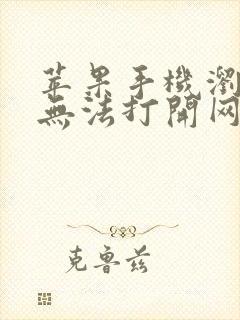 苹果手機瀏
無法打開网
克鲁兹